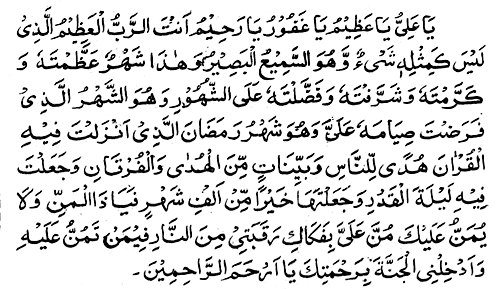 يَا عَلِيُّ يَا عَظِيْمُ يَا غَفُوْرُ يَا رَحِيْمُ اَنْتَ الرَّبُّ الْعَظِيْمُ الَّذِيْ
لَيْسَ كَمِثْلِهٖ شَيْءٌ وَّهُوَ السَّمِيْعُ الْبَصِيْرُ وَهٰذَا شَهْرٌ عَظَّمْتَهٗ وَ
كَرَّمْتَهٗ وَشَرَّفْتَهٗ وَفَضَّلْتَهٗ عَلَى الشُّهُوْرِ وَهُوَ الشَّهْرُ الَّذِيْ
فَرَضْتَ صِيَامَهٗ عَلَيَّ وَهُوَ شَهْرُ رَمَضَانَ الَّذِيْ اَنْزَلْتَ فِيْهِ
الْقُرْاٰنَ هُدًى لِّلنَّاسِ وَبَيِّنَاتٍ مِّنَ الْهُدٰى وَالْفُرْقَانِ وَجَعَلْتَ
فِيْهِ لَيْلَةَ الْقَدْرِ وَجَعَلْتَهَا خَيْرًا مِّنْ اَلْفِ شَهْرٍ فَيَا ذَا الْمَنِّ وَلَا
يُمَنُّ عَلَيْكَ مُنَّ عَلَيَّ بِفَكَاكِ رَقَبَتِيْ مِنَ النَّارِ فِيْمَنْ تَمُنُّ عَلَيْهِ
وَاَدْخِلْنِي الْجَنَّةَ بِرَحْمَتِكَ يَا اَرْحَمَ الرَّاحِمِيْنَ۔